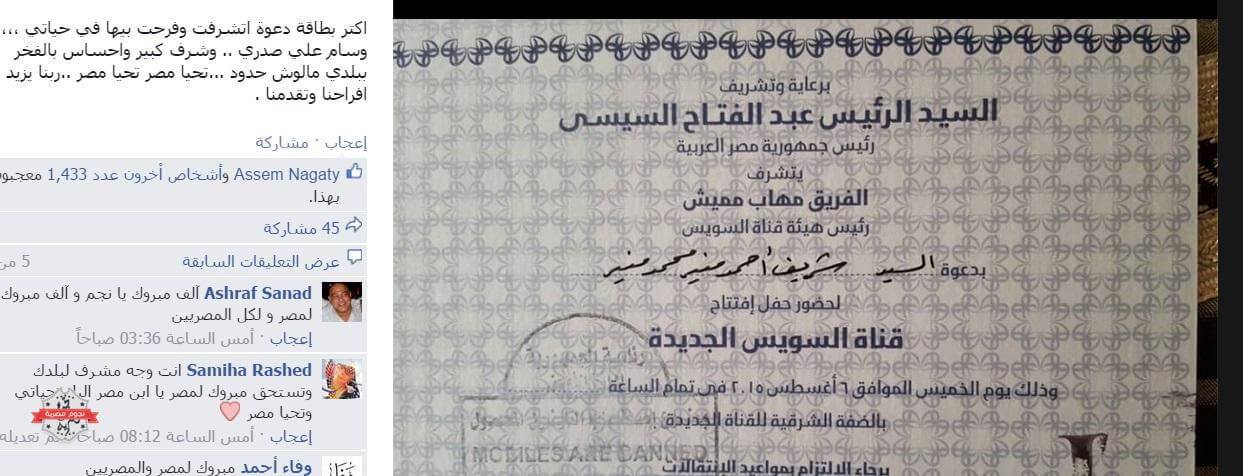 اكتر بطاقة دعوة اتشرفت وفرحت بيها في حياتي ,,,
وسام علي صدري .. وشرف كبير واحساس بالفخر
ببلدي مالوش حدود ...تحيا مصر تحيا مصر ..ربنا يزيد
افراحنا وتقدمنا .
إعجاب · مشاركة
Assem Nagaty وأشخاص آخرون عدد 1,433 معجبون
بهذا.
45 مشاركة
عرض التعليقات السابقة
5 من
Ashraf Sanad آلف مبروك يا نجم و آلف مبروك
لمصر و لكل المصريين
إعجاب · أمس الساعة 03:36 صباحاً
Samiha Rashed انت وجه مشرف لبلدك
وتستحق مبروك لمصر يا ابن مصر حياتي
وتحيا مصر
إعجاب · أمس الساعة 08:12 تم تعديله
وفاء أحمد مبروك لمصر والمصريين
نجوم مصرية
برعاية وتشريف
السيد الرئيس عبد الفتاح السيسى
رئيس جمهورية مصر العربية
يتشرف
الفريق مهاب مميش
رئيس هيئة قناة السويس
بدعوة السيد شريف أحمد منير محمد منير
لحضور حفل إفتتاح
قناة السويس الجديدة
وذلك يوم الخميس الموافق ٦ أغسطس ٢٠١٥ فى تمام الساعة
بالضفة الشرقية للقناة الجديدة
رئاسة الجمهورية
MOBILES ARE BANNED
برجاء الالتزام بمواعيد الإنتقالات